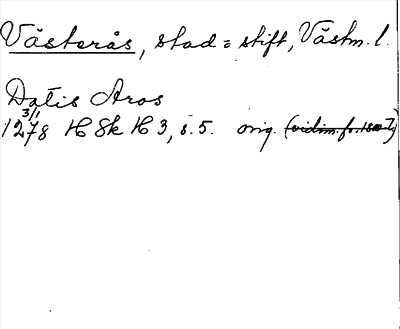 Västerås, stad = stift, Västm. l.
Datis Aros
3/1
1278 HSk H 3, s. 5. orig. (vidim. fr.